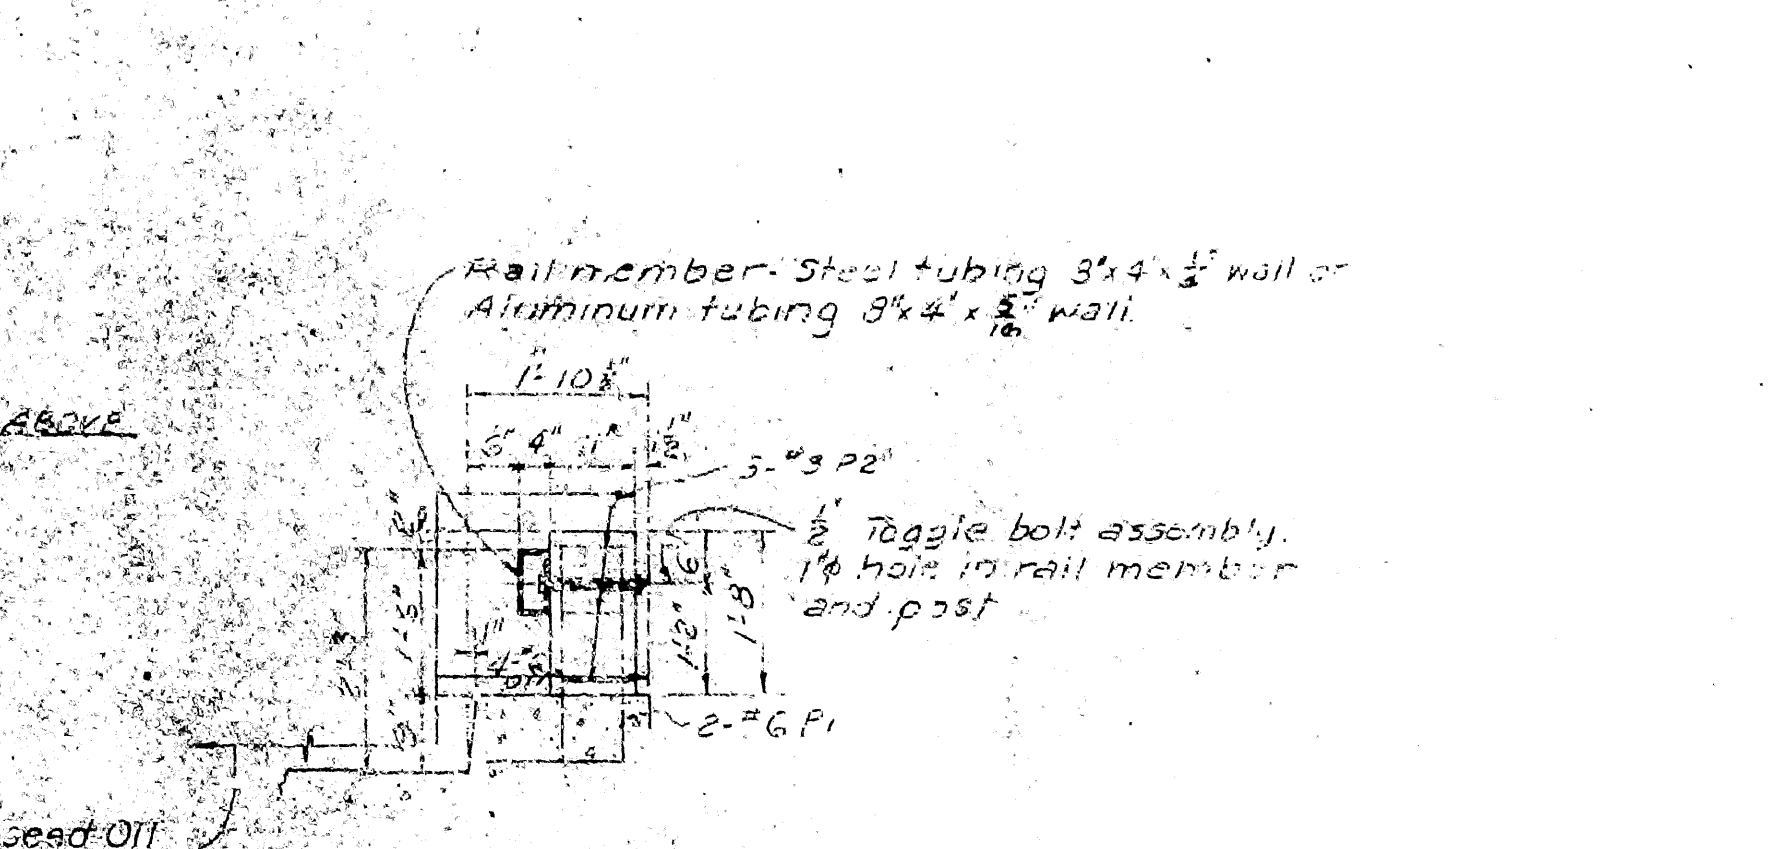 Rail member - Steel tubing 8"x4"x wall or
Aluminum tubing 8"x4"x 5/16" wall.
1'-10½"
ABOVE
6" 4" 11" 1½"
5-#3 P2
½" Toggle bolt assembly.
1"φ hole in rail member
and post
6"
1'-5"
1'-2"
1'-8"
1"
9"
2-#6 P1
seed Oil